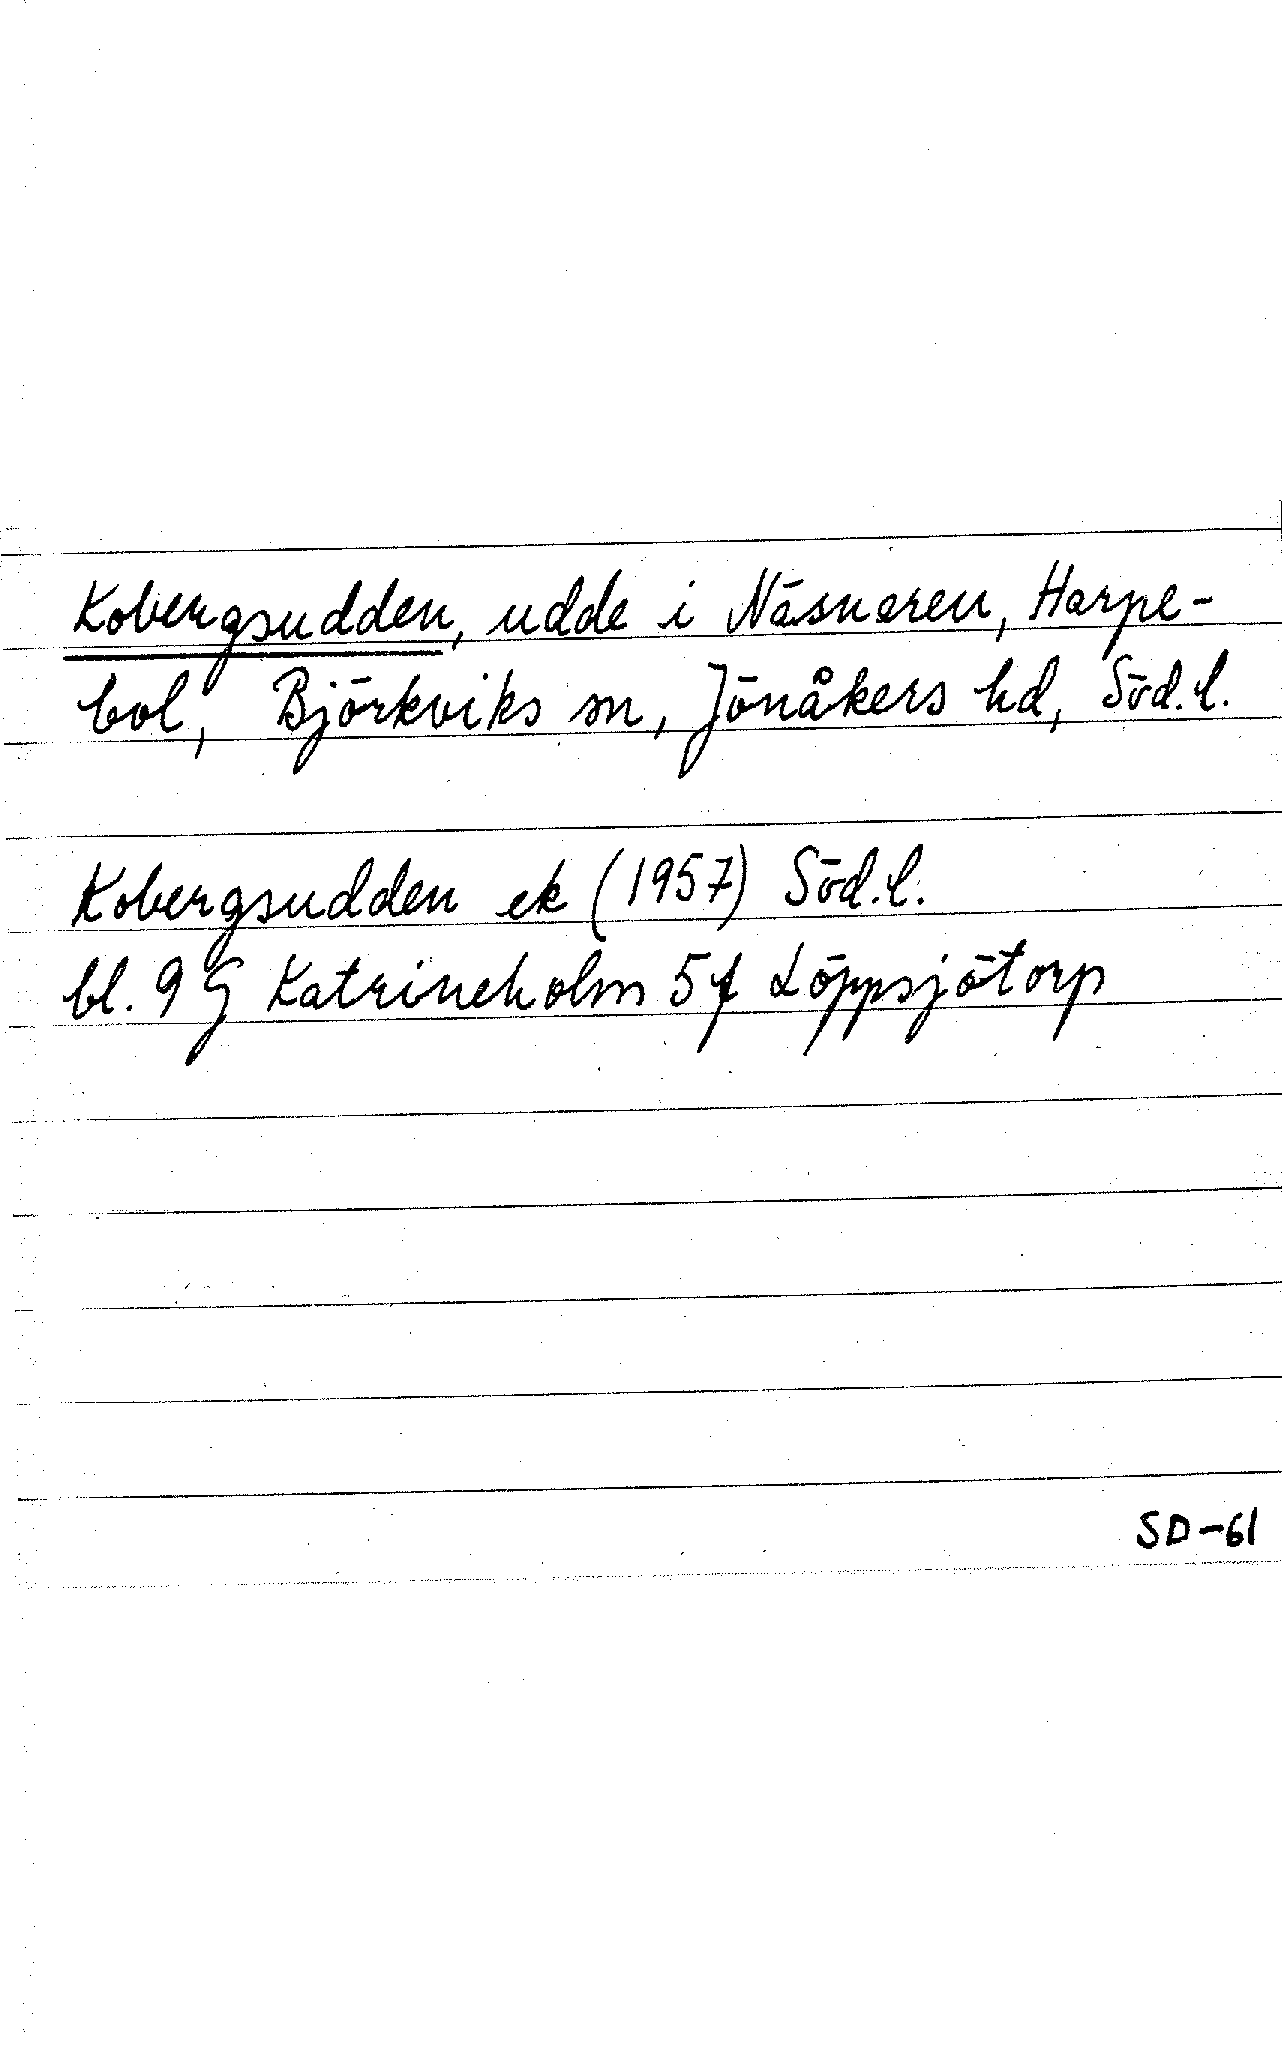 Kobergsudden, udde i Näsnaren, Harpe-
bol, Björkviks sn, Jönåkers hd, Söd.l.
Kobergsudden ek (1957) Söd.l.
bl. 9 G Katrineholm 5 f Löppsjötorp
SD-61